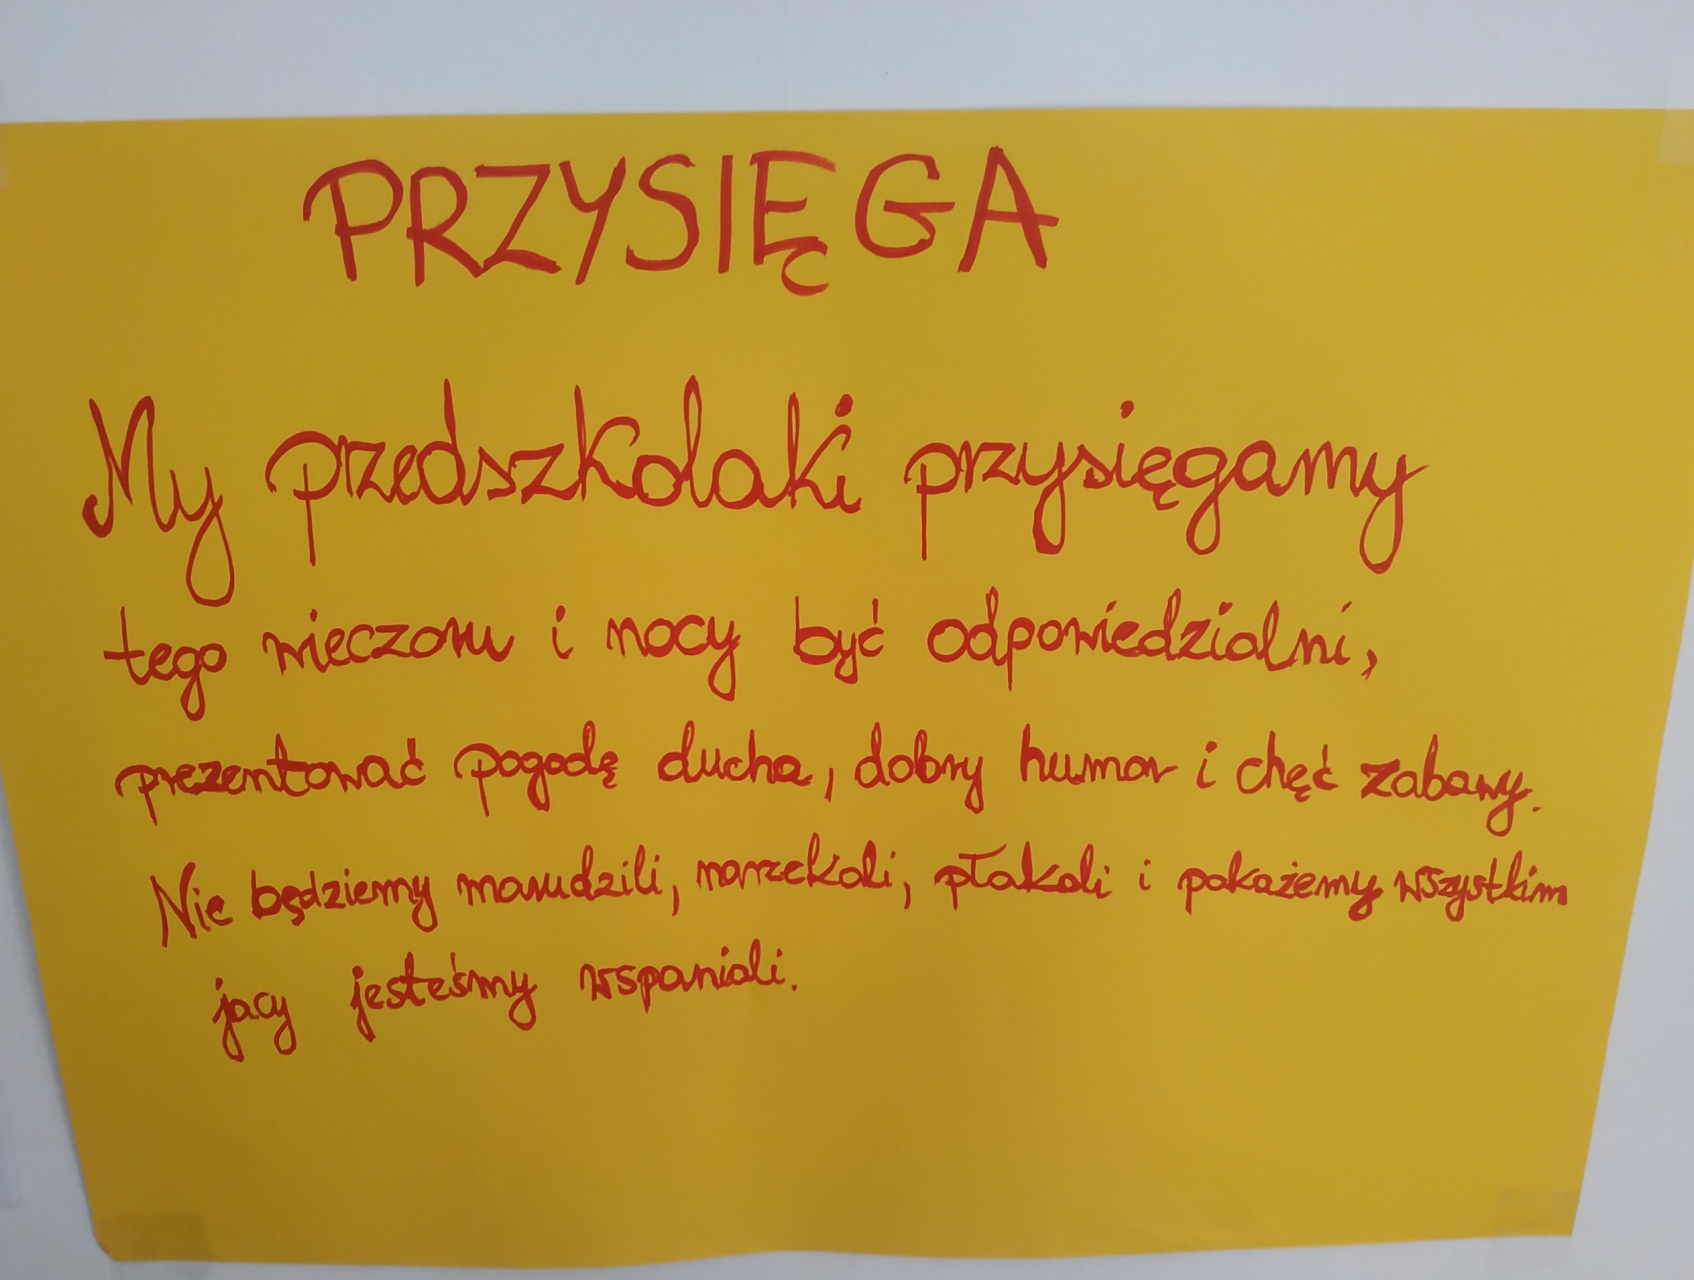 PRZYSIĘGA
My przedszkolaki przysięgamy
tego wieczoru i nocy być odpowiedzialni,
prezentować pogodę ducha, dobry humor i chęć zabawy.
Nie będziemy marudzili, narzekali, płakali i pokażemy wszystkim
jacy jesteśmy wspaniali.